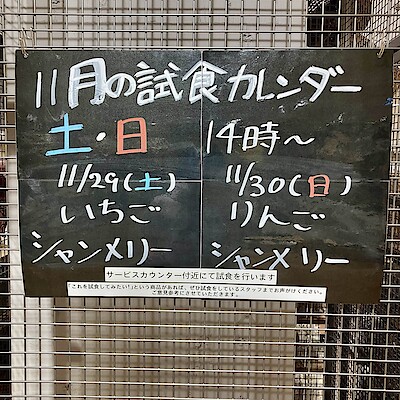 11月の試食カレンダー
土・日 14時～
11/29(土) 11/30(日)
いちご りんご
シャンメリー シャンメリー
サービスカウンター付近にて試食を行います
「これを試食してみたい!」という商品があれば、ぜひ試食をしているスタッフまでお声がけください。
ご意見参考にさせていただきます。